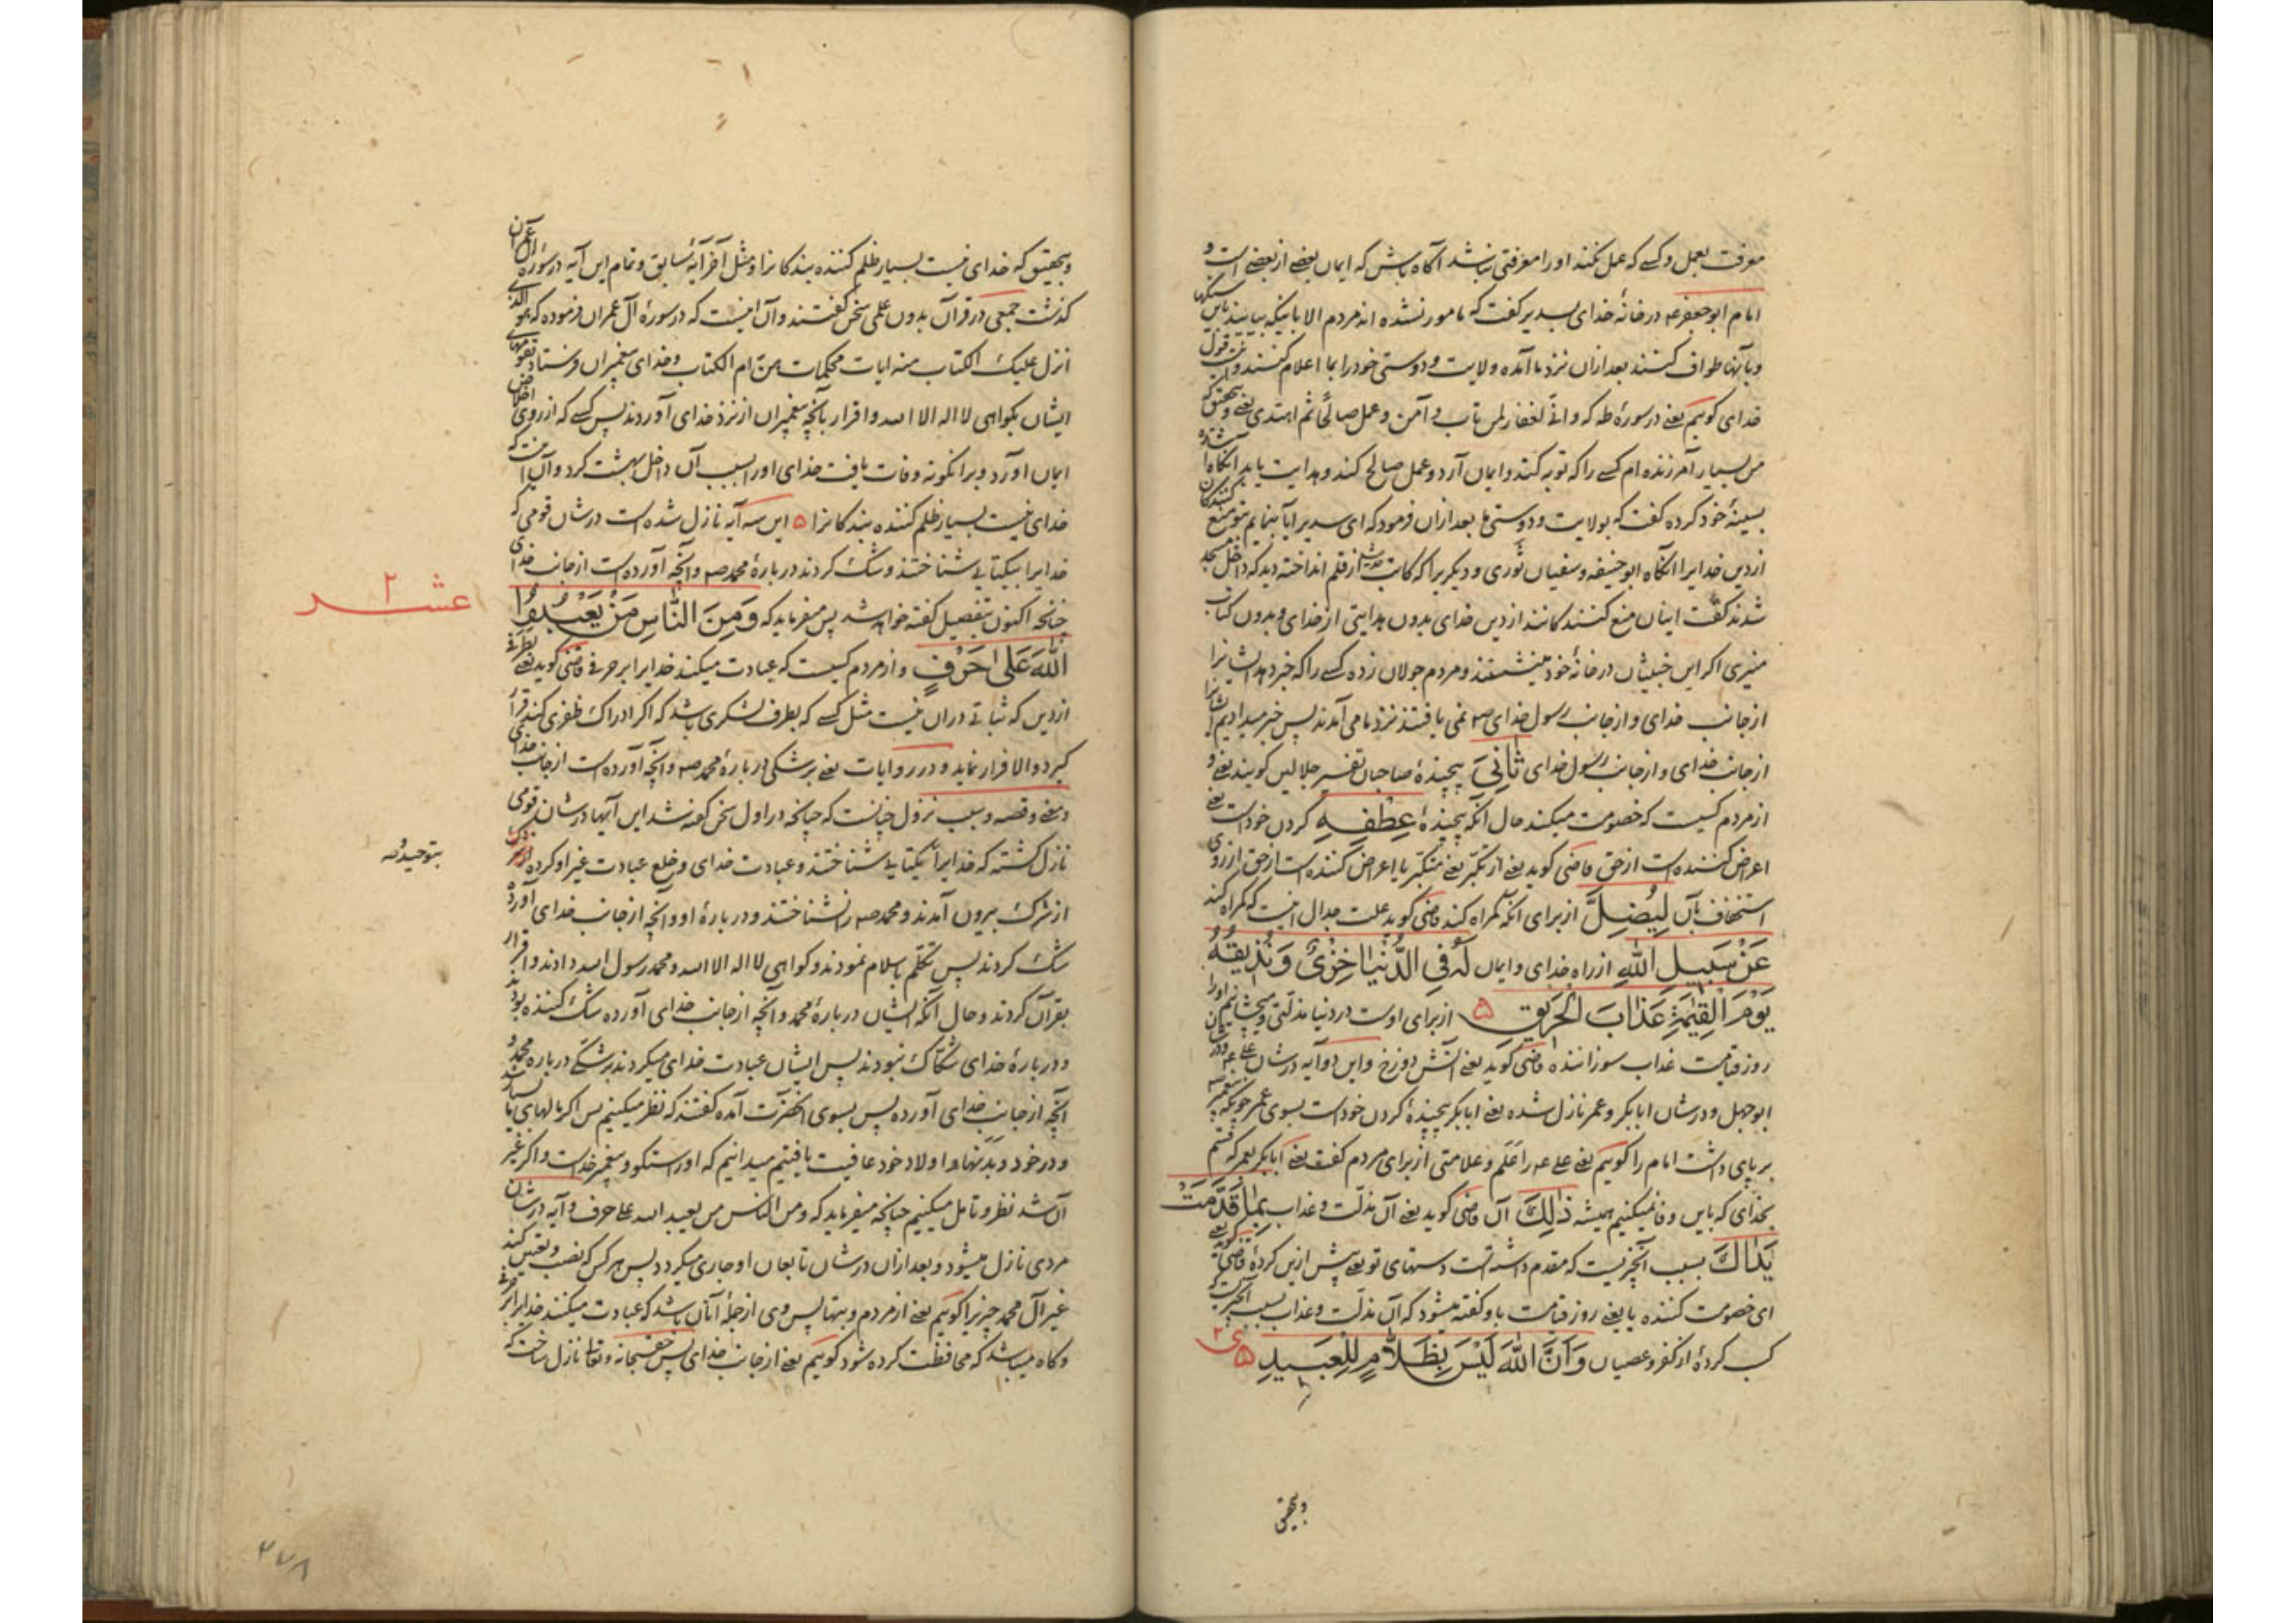 معرفت بعمل و کسے که عمل نکند او را معرفتی نباشد آگاه باش که ایمان بعضے از بعضے است و
امام ابو جعفر عہ در خانهٔ خدای بسدیر گفت که مامور نشده اند مردم الا باینکه بیایند باین سنگها
و بآنها طواف کنند بعد از ان نزد ما آمده ولایت و دوستی خود را بما اعلام کنند و اینست قول
خدای گوییم یعنے در سورهٔ طه که و انّی لغفار لمن تاب و آمن و عمل صالحًا ثم اهتدی یعنے و بتحقیق که
من بسیار آمرزنده ام کسے را که توبه کند و ایمان آرد و عمل صالح کند و هدایت یابد آنگاه اشاره
بسینهٔ خود کرده گفت که بولایت و دوستی ما بعد از ان فرمود که ای سدیر آیا بنمایم بتو منع کنندگان
از دین خدای را آنگاه ابو حنیفه و سفیان ثوری و دیگریرا که کاتب از قلم انداخته دید که داخل مسجد
شدند گفت اینان منع کنند کانند از دین خدای بدون هدایتی از خدای و بدون کتاب
منیری اگر این خبیثان در خانهٔ خود مینشستند و مردم جولان زده کسے را که خبر دهد ایشانرا
از جانب خدای و از جانب رسول خدای صہ نمی یافتند نزد ما می آمدند پس خبر میدادیم ایشانرا
از جانب خدای و از جانب رسول خدای ثَانِیَ پیچیندهٔ صاحبان تفسیر جلالین گویند یعنے و
از مردم کسیست که خصومت میکند حال آنکه پیچیندهٔ عِطْفِهِ گردن خود است یعنے
اعراض کننده است از حق قاضی گوید یعنے از تکبّر یعنے متکبّر یا اعراض کننده است از حق از روی
استخفاف بآن لِیُضِلَّ از برای آنکه گمراه کند قاضی گوید علت جدال اینست که گمراه کند
عَنْ سَبِیلِ اللّٰهِ از راه خدای و ایمان لَهُ فِی الدُّنْیَا خِزْیٌ وَ نُذِیقُهُ
یَوْمَ الْقِیٰمَةِ عَذَابَ الْحَرِیقِ ۵ از برای اوست در دنیا مذلّتی و میچشانیم او را
روز قیامت عذاب سوزاننده قاضی گوید یعنے آتش دوزخ و این دو آیه در شان
ابو جهل و در شان ابابکر و عمر نازل شده یعنے ابابکر پیچیندهٔ گردن خود است بسوی عمر چونکه پیغمبر صہ
بر پای داشت امام را گوییم یعنے علے عہ را عَلَم و علامتی از برای مردم گفت یعنے ابابکر بعمر که قسم
بخدای که باین وفا نمیکنیم همیشه ذٰلِکَ آن قاضی گوید یعنے آن مذلّت و عذاب بِمَا قَدَّمَتْ
یَدَاكَ بسبب آنچیزیست که مقدم داشته است دستهای تو یعنے پیش ازین کردهٔ قاضی گوید یعنے
ای خصومت کننده یا یعنے روز قیامت باو گفته میشود که آن مذلّت و عذاب بسبب آنچیزیست که
کسب کردهٔ از کفر و عصیان وَ اَنَّ اللّٰهَ لَیْسَ بِظَلَّامٍ لِلْعَبِیدِ ۵
و بتحقیق
و بتحقیق که خدای نیست بسیار ظلم کننده بندکانرا و مثل آخر آیهٔ سابق و تمام این آیه در سورهٔ آل عمران
گذشت جمعی در قرآن بدون علمی سخن گفتند و آن اینست که در سورهٔ آل عمران فرموده که هو الذی
انزل علیک الکتاب منه ایات محکمات هن ام الکتاب و خدای پیغمبران فرستاد بقومهای
ایشان بگواهی لا اله الا الله و اقرار بآنچه پیغمبران از نزد خدای آوردند پس کسے که از روی اخلاص
ایمان اورد و برانگونه وفات یافت خدای او را بسبب آن داخل بهشت گرد و آن اینست که
خدای نیست بسیار ظلم کننده بندکانرا ۵ این سه آیه نازل شده است در شان قومی که
خدایرا بیکتایی شناختند و شک کردند در بارهٔ محمد صہ و آنچه آورده است از جانب خدای
چنانچه اکنون بتفصیل گفته خواهد شد پس میفرماید که وَمِنَ النَّاسِ مَنْ یَعْبُدُ
عشر ۲
اللّٰهَ عَلٰی حَرْفٍ و از مردم کسیست که عبادت میکند خدایرا بر حرفی قاضی گوید یعنے بطرفی
از دین که ثباتی در ان نیست مثل کسے که بطرف لشکری باشد که اگر ادراک ظفری کند قرار
گیرد و الا فرار نماید و در روایات یعنے بر شکی در بارهٔ محمد صہ و آنچه آورده است از جانب خدای
و معنے و قصه و سبب نزول چنانست که چنانچه در اول سخن گفته شد این آیها در شان قومی
نازل گشته که خدایرا بیکتایی شناختند و عبادت خدای و خلع عبادت غیر او کرده
بتوحید
از شرک بیرون آمدند و محمد صہ را نشناختند و در بارهٔ او و آنچه از جانب خدای آورده
شک کردند پس تکلّم باسلام نمودند و گواهی لا اله الا الله و محمد رسول الله دادند و اقرار
بقرآن کردند و حال آنکه ایشان در بارهٔ محمد و آنچه از جانب خدای آورده شک کننده بودند
و در بارهٔ خدای شکّاک نبودند پس ایشان عبادت خدای میکردند بر شکّے در باره محمد و
آنچه از جانب خدای آورده پس بسوی آنحضرت آمده گفتند که نظر میکنیم پس اگر مالهای ما بسیار شد
و در خود و بدنها و اولاد خود عافیت یافتیم میدانیم که او راستگو و پیغمبر خداست و اگر غیر
آن شد نظر و تامل میکنیم چنانچه میفرماید که و من الناس من یعبد الله علے حرف و آیه در شان
مردی نازل میشود و بعد از ان در شان تابعان او جاری میگردد پس هر کس که نصب و تعیین کند
غیر آل محمد چیزیرا گوییم یعنے از مردم و بتها پس وی از جملهٔ آنان باشد که عبادت میکنند خدایرا بر حرفے
و گاه میباشد که محافظت کرده شود گوییم یعنے از جانب خدای پس حقسبحانه و تعالے نازل ساخت که
۲۷۸